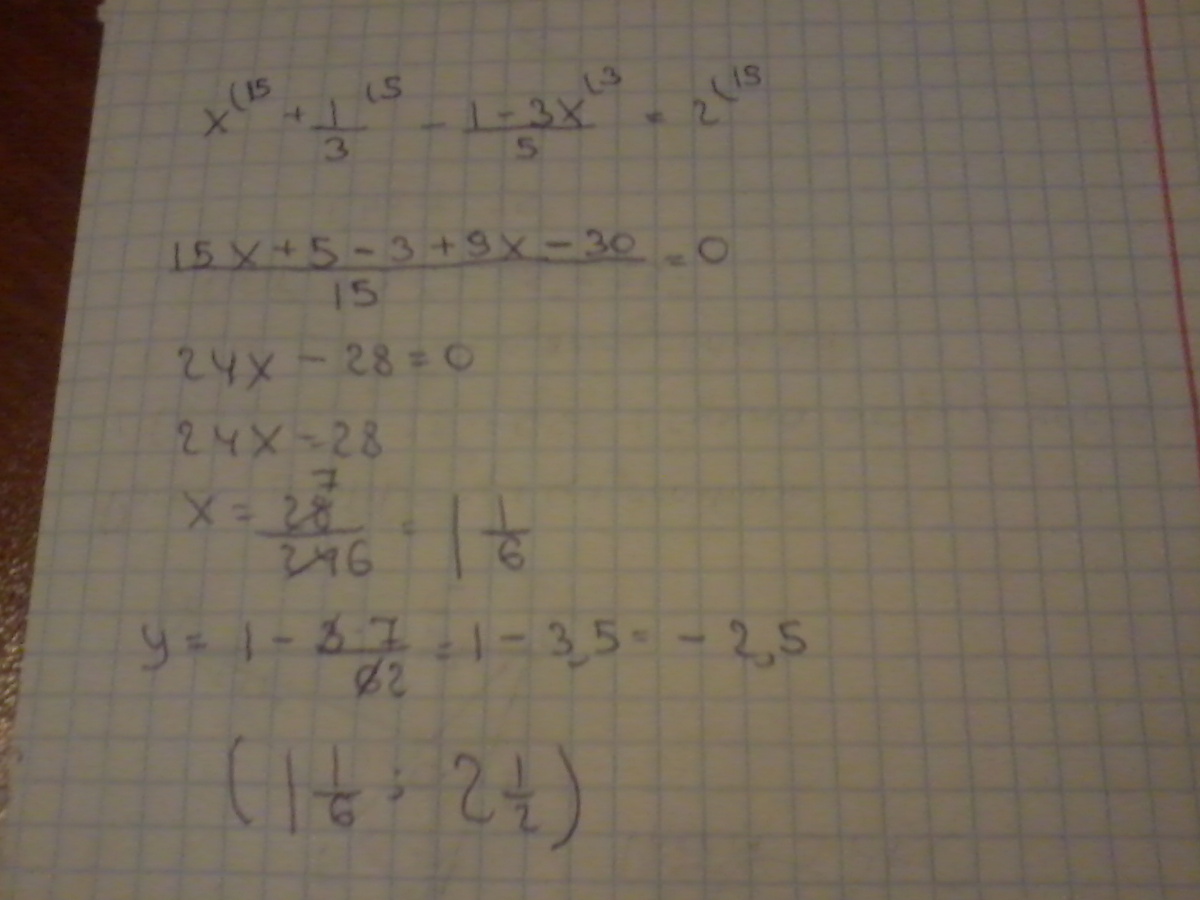 x⁽¹⁵ + 1/3⁽⁵ - (1 - 3x)/5⁽³ = 2⁽¹⁵
(15x + 5 - 3 + 9x - 30)/15 = 0
24x - 28 = 0
24x = 28
x = 28⁷/24 6 = 1 1/6
y = 1 - 3·7/6 2 = 1 - 3,5 = - 2,5
(1 1/6 ; 2 1/2)